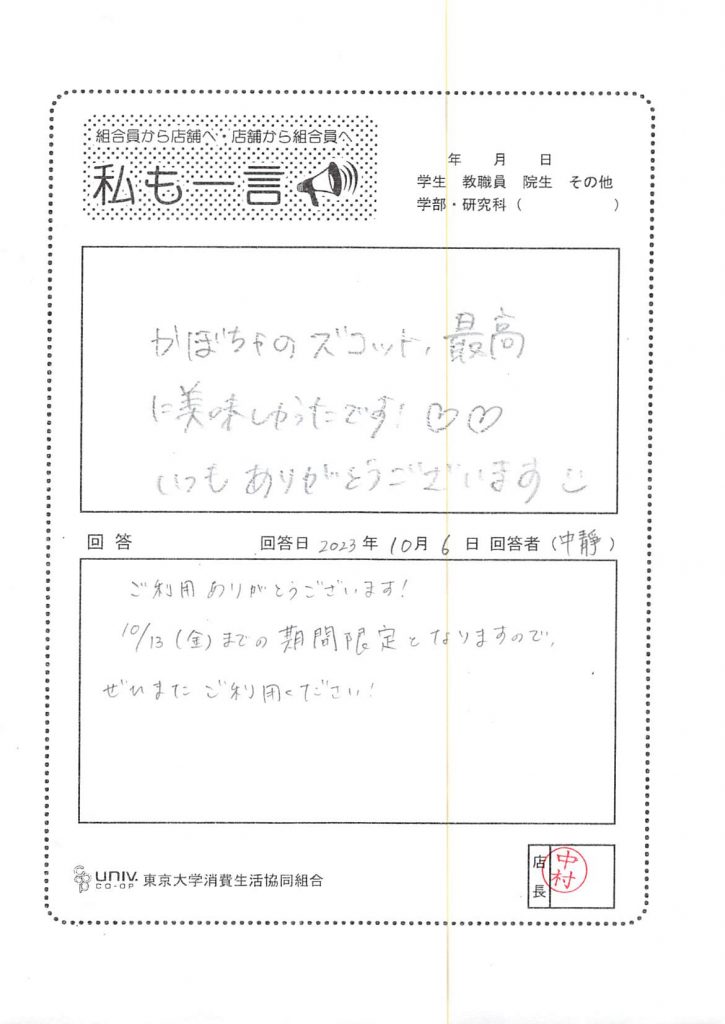 組合員から店舗へ・店舗から組合員へ
私も一言
年 月 日
学生 教職員 院生 その他
学部・研究科( )
かぼちゃのズコット、最高
に美味しかったです! ♡♡
いつもありがとうございます
回答 回答日 2023年 10月 6日 回答者(中靜)
ご利用ありがとうございます!
10/13(金)までの期間限定となりますので、
ぜひまたご利用ください!
UNIV. CO-OP 東京大学消費生活協同組合
店長 中村